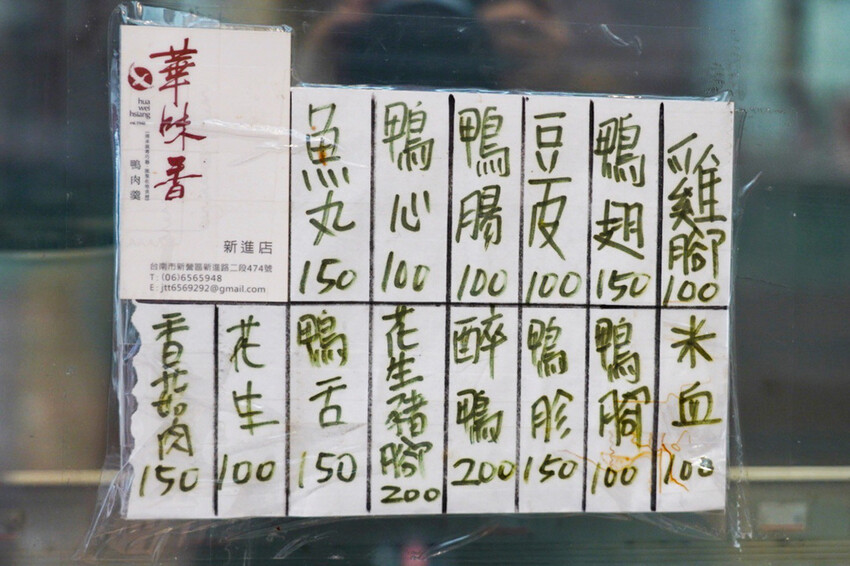 華味香
hua
wei
hsiang
鴨肉羹
新進店
台南市新營區新進路二段474號
T: (06)6565948
E: jtt6569292@gmail.com
魚丸
150
鴨心
100
鴨腸
100
豆皮
100
鴨翅
150
雞腳
100
香菇肉
150
花生
100
鴨舌
150
花生豬腳
200
醉鴨
200
鴨胗
150
鴨腳
100
米血
100